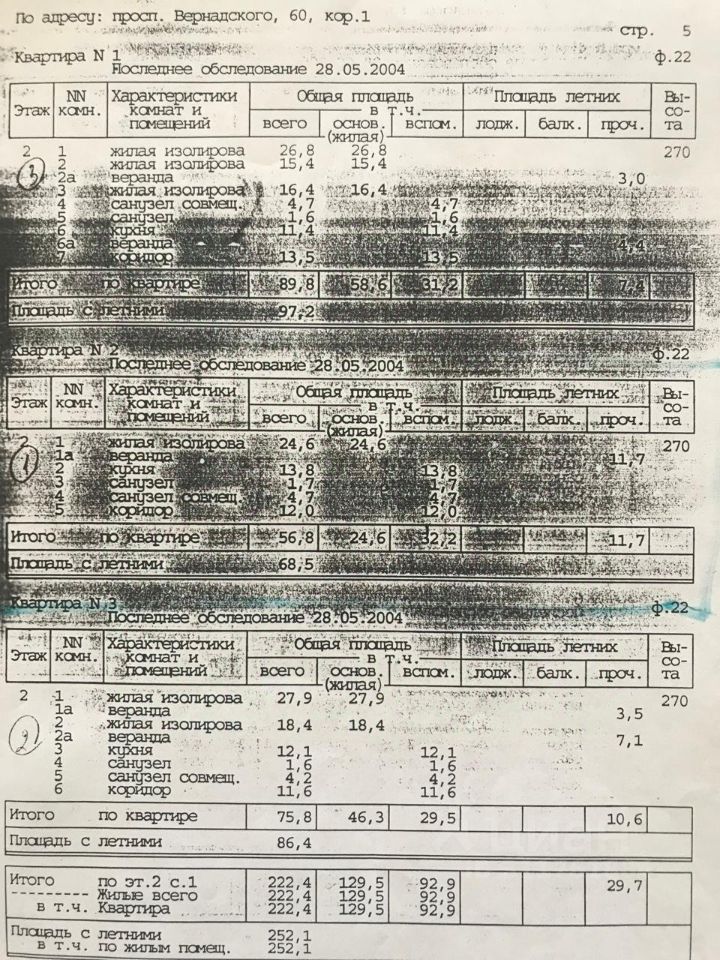 По адресу: просп. Вернадского, 60, кор.1
стр. 5
Квартира N 1 ф.22
Последнее обследование 28.05.2004
Этаж NN комн. Характеристики комнат и помещений Общая площадь всего в т.ч. основ. (жилая) вспом. Площадь летних лодж. балк. проч. Вы-со-та
2 1 жилая изолирова 26,8 26,8 270
2 жилая изолирова 15,4 15,4
3
2а веранда 3,0
3 жилая изолирова 16,4 16,4
4 санузел совмещ. 4,7 4,7
5 санузел 1,6 1,6
6 кухня 11,4 11,4
6а веранда 4,4
7 коридор 13,5 13,5
Итого по квартире 89,8 58,6 31,2 7,4
Площадь с летними 97,2
Квартира N 2 ф.22
Последнее обследование 28.05.2004
Этаж NN комн. Характеристики комнат и помещений Общая площадь всего в т.ч. основ. (жилая) вспом. Площадь летних лодж. балк. проч. Вы-со-та
2 1 жилая изолирова 24,6 24,6 270
1а веранда 11,7
1
2 кухня 13,8 13,8
3 санузел 1,7 1,7
4 санузел совмещ. 4,7 4,7
5 коридор 12,0 12,0
Итого по квартире 56,8 24,6 32,2 11,7
Площадь с летними 68,5
Квартира N 3 ф.22
Последнее обследование 28.05.2004
Этаж NN комн. Характеристики комнат и помещений Общая площадь всего в т.ч. основ. (жилая) вспом. Площадь летних лодж. балк. проч. Вы-со-та
2 1 жилая изолирова 27,9 27,9 270
1а веранда 3,5
2 жилая изолирова 18,4 18,4
2
2а веранда 7,1
3 кухня 12,1 12,1
4 санузел 1,6 1,6
5 санузел совмещ. 4,2 4,2
6 коридор 11,6 11,6
Итого по квартире 75,8 46,3 29,5 10,6
Площадь с летними 86,4
Итого по эт.2 с.1 222,4 129,5 92,9 29,7
---------- Жилые всего 222,4 129,5 92,9
в т.ч. Квартира 222,4 129,5 92,9
Площадь с летними 252,1
в т.ч. по жилым помещ. 252,1